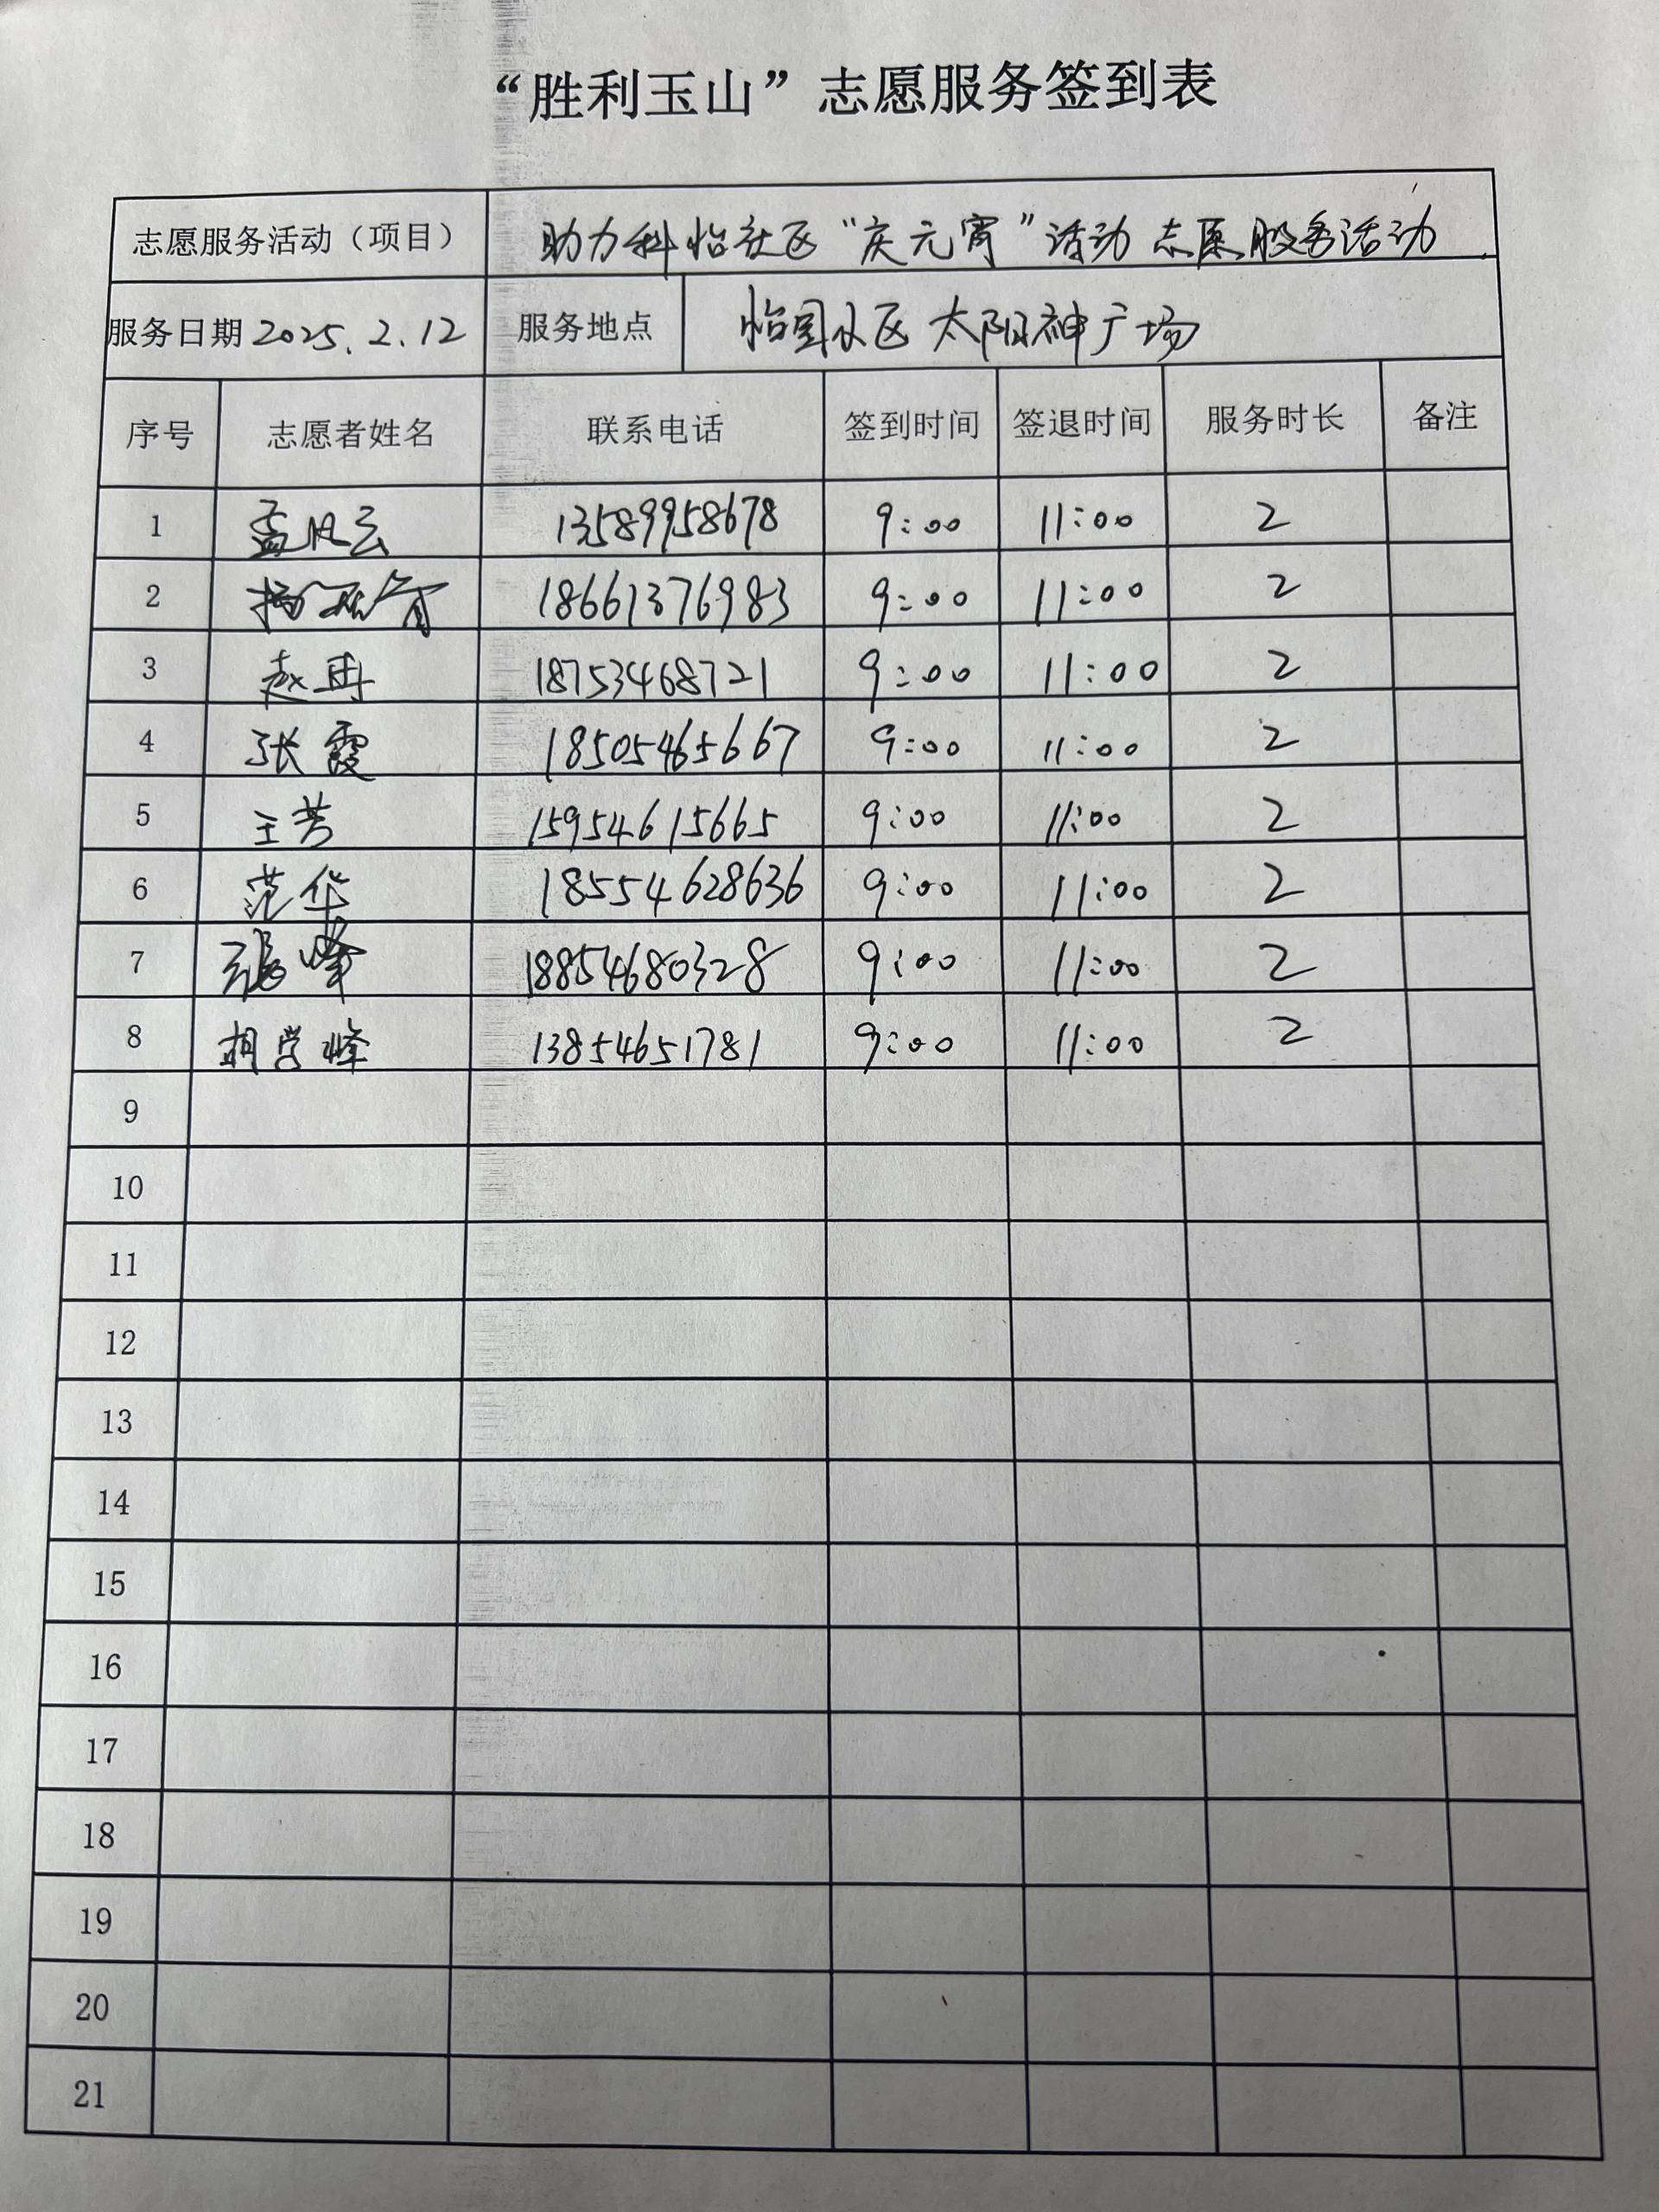 “胜利玉山”志愿服务签到表
志愿服务活动（项目） 助力科怡社区“庆元宵”活动 志愿服务活动
服务日期 2025.2.12 服务地点 怡园小区 太阳神广场
序号 志愿者姓名 联系电话 签到时间 签退时间 服务时长 备注
1 孟风云 13589958678 9:00 11:00 2
2 杨 18661376983 9:00 11:00 2
3 赵冉 18753468721 9:00 11:00 2
4 张霞 18505465667 9:00 11:00 2
5 王芳 15954615665 9:00 11:00 2
6 范华 18554628636 9:00 11:00 2
7 张峰 18854680328 9:00 11:00 2
8 胡学峰 13854651781 9:00 11:00 2
9
10
11
12
13
14
15
16
17
18
19
20
21